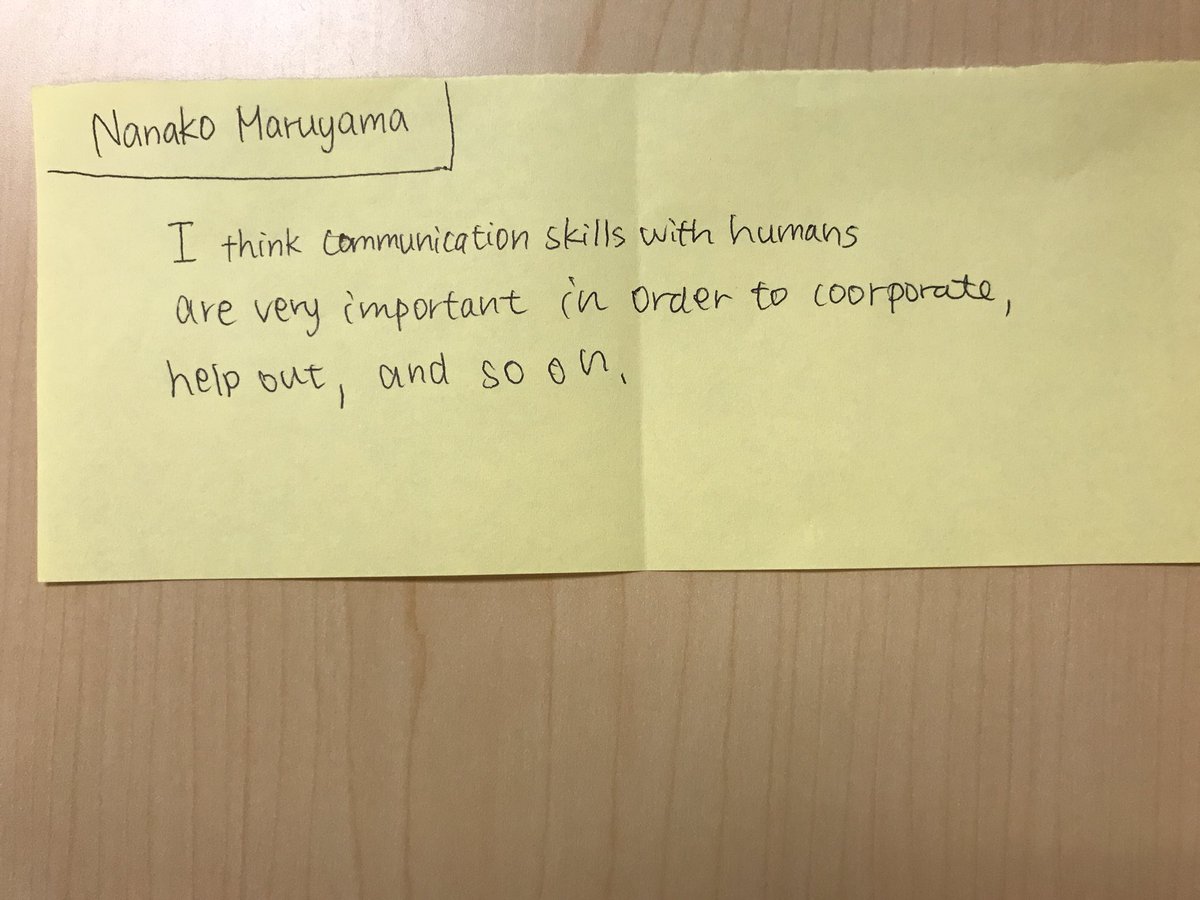 Nanako Maruyama
I think communication skills with humans
are very important in order to coorporate,
help out, and so on.